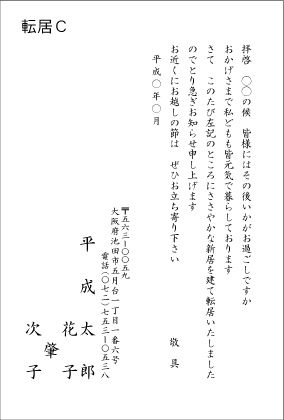 転居C
拝啓　〇〇の候　皆様にはその後いかがお過ごしですか
おかげさまで私どもも皆元気で暮らしております
さて　このたび左記のところにささやかな新居を建て転居いたしました
のでとり急ぎお知らせ申し上げます
お近くにお越しの節は　ぜひお立ち寄り下さい
敬具
平成〇年〇月
〒五六三-〇〇五九
大阪府池田市五月台一丁目一番六号
電話(〇七二)七五三-〇五三八
平成　太郎
花子
肇
次子